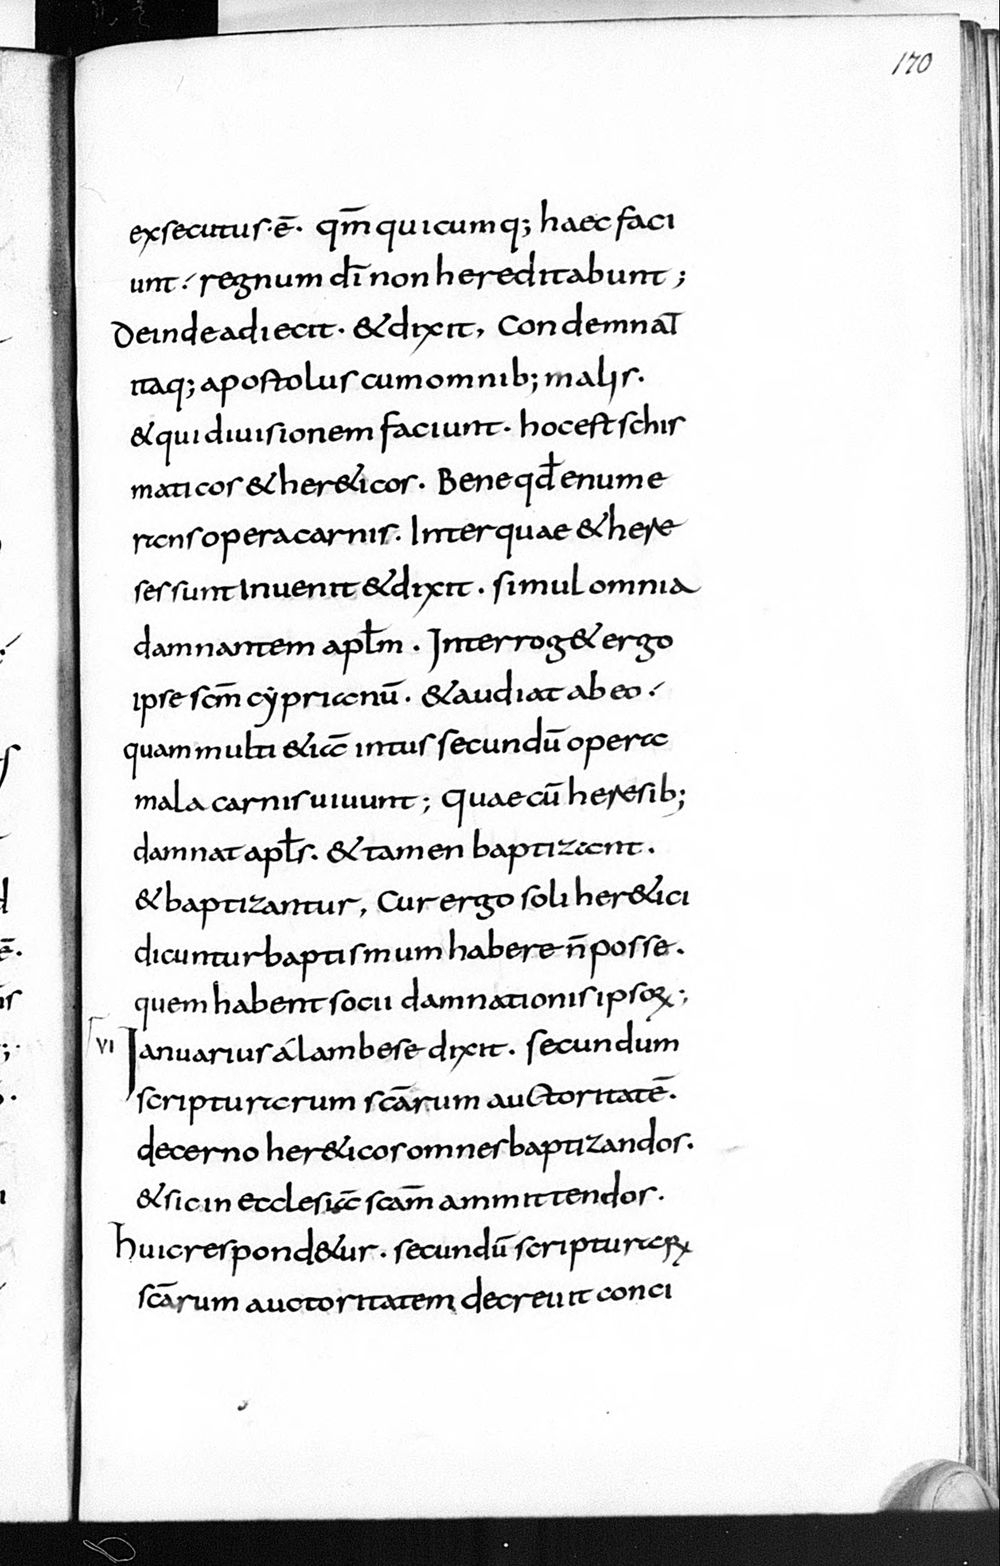 170
exsecutus·ē· qm̄ quicumq; haec faci
unt·́ regnum dī non hereditabunt;
Deinde adiecit· & dixit, Condemnat̄
itaq; apostolus cum omnib; malis.
& qui diuisionem faciunt· hoc est schis
maticos & her&icos· Bene qđ enume
rans opera carnis. Inter quae & here
ses sunt Inuenit & dixit. simul omnia
damnantem aptm̄. Interrog& ergo
ipse scm̄ cẏprianū. & audiat ab eo·́
quam multi &iā intus secundū opera
mala carnis uiuunt; quae cū heresib;
damnat apłs. & tamen baptizant.
& baptizantur, Cur ergo soli her&ici
dicuntur baptismum habere n̄ posse.
quem habent socii damnationis ipsoꝝ;
VI Ianuarius á lambese dixit. secundum
scripturarum scārum auctoritatē.
decerno her&icos omnes baptizandos.
& sic in ecclesiā scam̄ ammittendos.
huic respond&ur. secundū scripturaꝝ
scārum auctoritatem decreuit conci